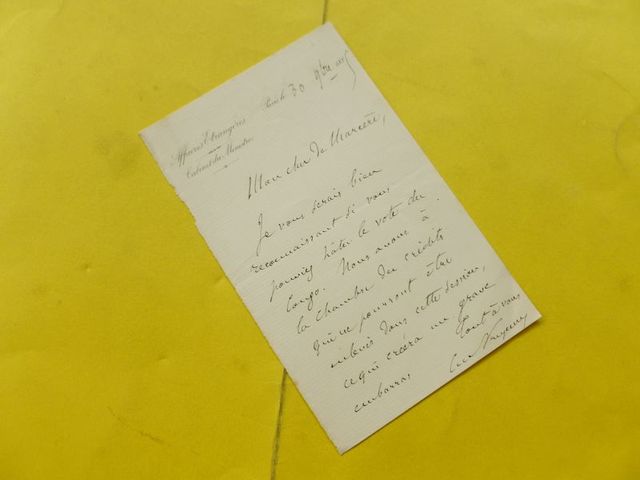 Affaires Etrangères
Cabinet du Ministre
Paris le 30 9bre
Mon cher de Marcère,
Je vous serais bien
reconnaissant si vous
pouviez hâter le vote du
Congo. Nous avons à
la Chambre des crédits
qui ne pourront être
enlevés dans cette session,
ce qui créera un grave
embarras
Tout à vous